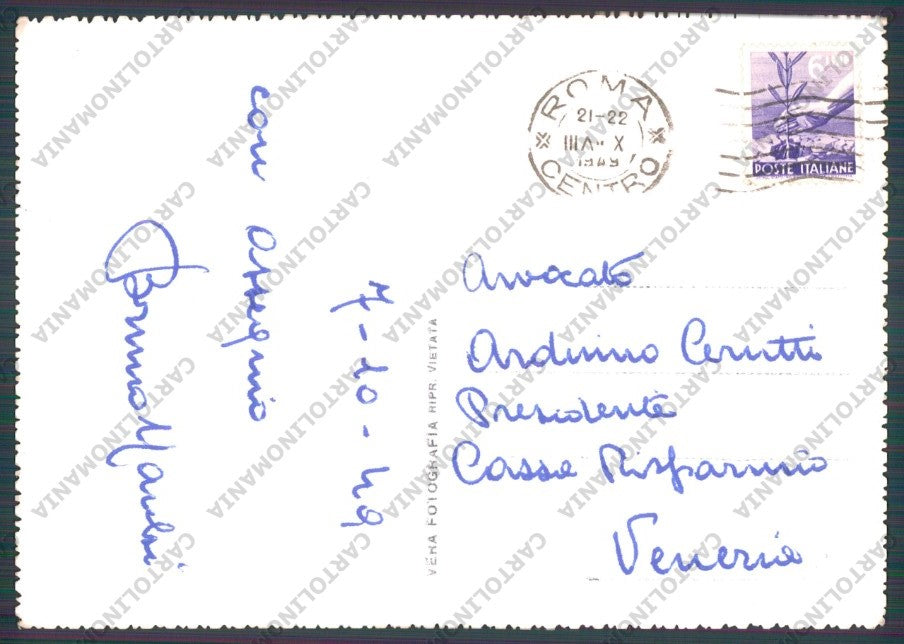 ROMA
21-22
X
1949
CENTRO
6
POSTE ITALIANE
7-10-49
con ossequio
Bruno
VERA FOTOGRAFIA RIPR. VIETATA
Avvocato
Arduino Cerutti
Presidente
Cassa Risparmio
Venezia
CARTOLINOMANIA